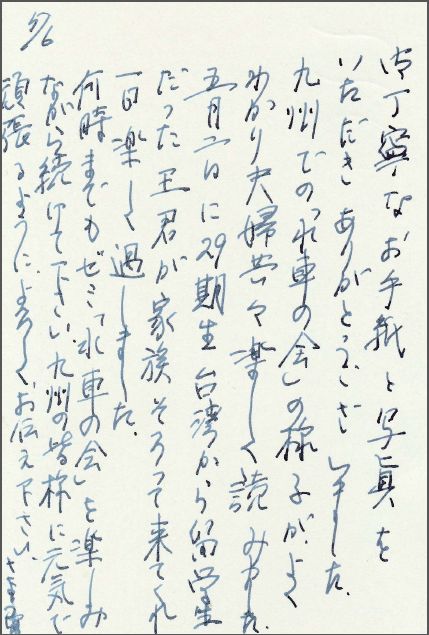 御丁寧なお手紙と写真を
いただきありがとうございました。
九州での「水車の会」の様子がよく
わかり夫婦共々楽しく読みました。
五月二日に29期生台湾から留学生
だった王君が家族そろって来てくれ
一日楽しく過しました。
何時までもぜひ「水車の会」を楽しみ
ながら続けて下さい。九州の皆様に元気で
頑張るようによろしくお伝え下さい。
5/6